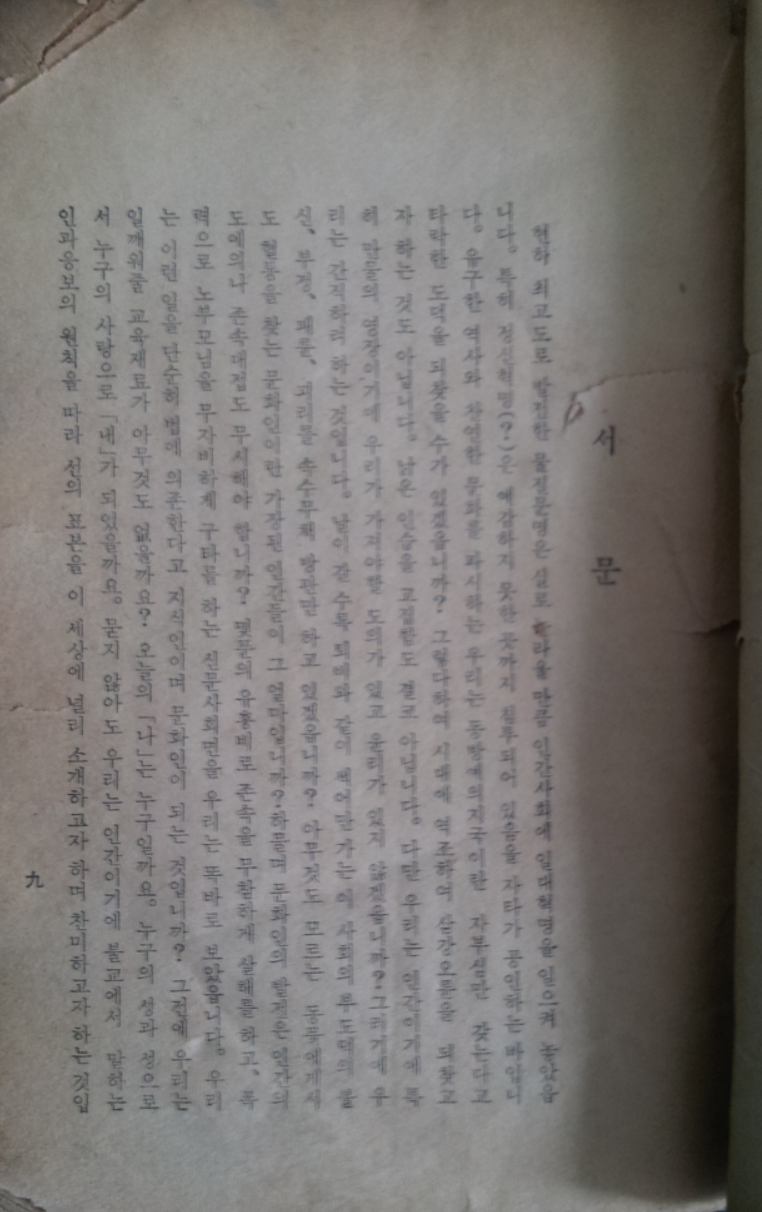 서 문
현하 최고도로 발전한 물질문명은 실로 놀라을 만큼 인간사회에 일대혁명을 일으켜 놓았읍
니다。 특히 정신혁명(?)은 예감하지 못한 곳까지 침투되어 있음을 자타가 공인하는 바입니
다。 유구한 역사와 찬연한 문화를 과시하는 우리는 동방예의지국이란 자부심만 갖는다고
타락한 도덕을 되찾을 수가 있겠읍니까? 그렇다하여 시대에 역 삼강오륜을 되찾고
자 하는 것도 아닙니다。 낡은 인습을 고집함도 결코 아닙니다。 다만 우리는 인간이기에 특
히 만물의 영장이기에 우리가 가져야할 도의가 있고 윤리가 있지 않겠읍니까? 그러기에 우
리는 간직하려 하는 것입니다。 날이 갈수록 퇴폐와 같이 이 사회의 부도덕의 불
신、 부정、 패륜、 비리를 속수무책 방관만 하고 있겠읍니까? 아무것도 모르는 동물에게서
도 활동을 찾는 문화인이란 가장된 인간들이 그 얼마입니까? 하물며 문화인의 발전은 인간의
도의의나 존속대접도 무시해야 합니까? 몇푼의 유흥비로 존속을 무참하게 살해를 하고、 폭
력으로 노부모님을 무자비하게 구타를 하는 신문사회면을 우리는 똑바로 보았읍니다。 우리
는 이런 일을 단순히 법에 의존한다고 지식인이며 문화인이 되는 것입니까? 그전에 우리는
일깨워줄 교육재료가 아무것도 없을까요? 오늘의 「나」는 누구일까요。 누구의 성과 정으로
서 누구의 사랑으로 「내」가 되었을까요。 묻지 않아도 우리는 인간이기에 불교에서 말하는
인과응보의 원칙을 따라 선의 표본을 이 세상에 널리 소개하고자 하며 찬미하고자 하는 것입
九